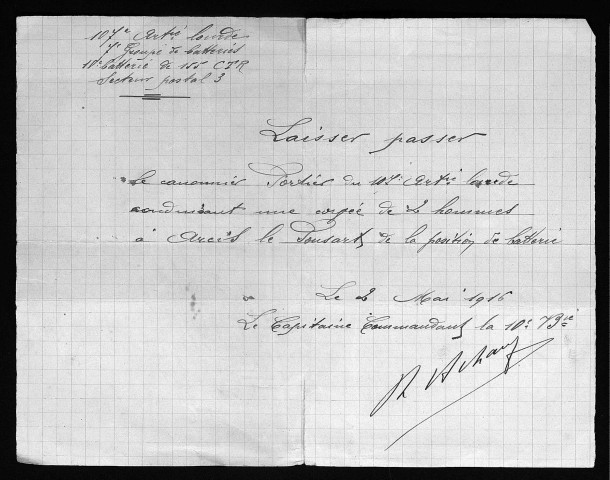 107e Artie lourde
7e Groupe de batteries
10e batterie de 155 CTR
Secteur postal 3
Laisser passer
Le canonnier Portier du 107e Artie lourde
conduisant une corvée de 2 hommes
à Arcis le Ponsart, de la position de batterie
Le 2 Mai 1916
Le Capitaine Commandant la 10e Bie